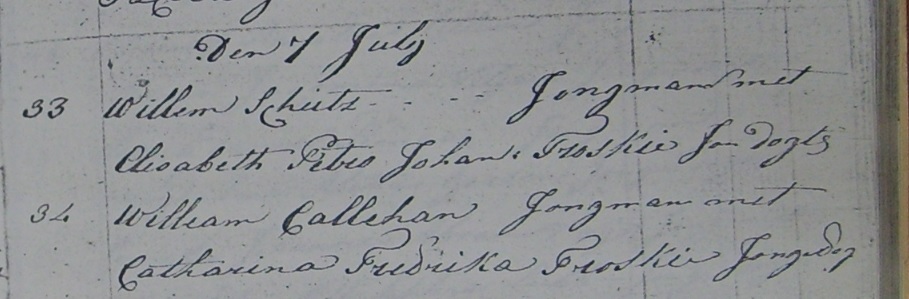 Den 7 July
33 Willem Schutz - - - Jongman met
Elisabeth Petro Johan: Froskie Jon dogtr
34 William Callehan Jongman met
Catharina Fredrika Froskie Jongedog